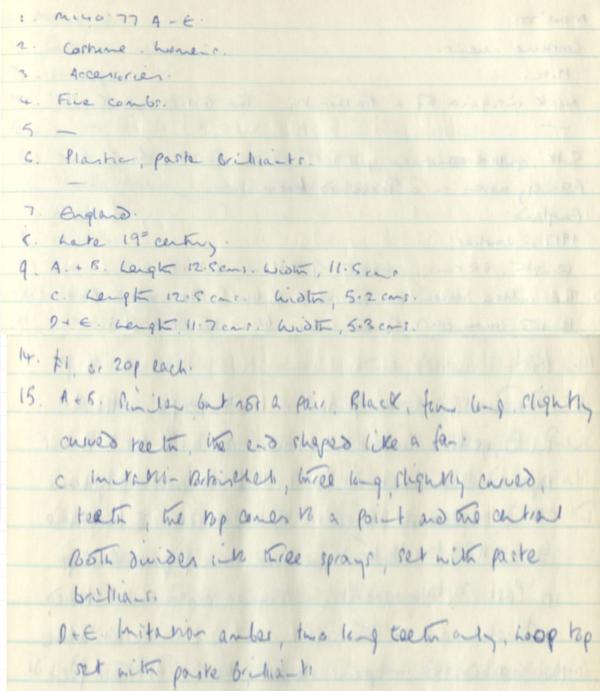 1. M140'77 A-E.
2. Costume. Womens.
3. Accessories.
4. Five combs.
5 —
6. Plastic, paste brilliants.
—
7. England.
8. Late 19th century.
9. A.+B. Length 12.5cms. Width, 11.5cms
C. Length 12.5 cms. Width, 5.2cms.
D+E. Length, 11.7cms. Width, 5.3cms.
14. £1, or 20p each.
15. A+B. Similar but not a pair. Black, four long, slightly
curved teeth, the end shaped like a fan.
C. Imitation tortoiseshell, three long, slightly curved,
teeth, the top comes to a point and the central
tooth divides into three sprays, set with paste
brilliants.
D+E. Imitation amber, two long teeth only, hoop top
set with paste brilliants